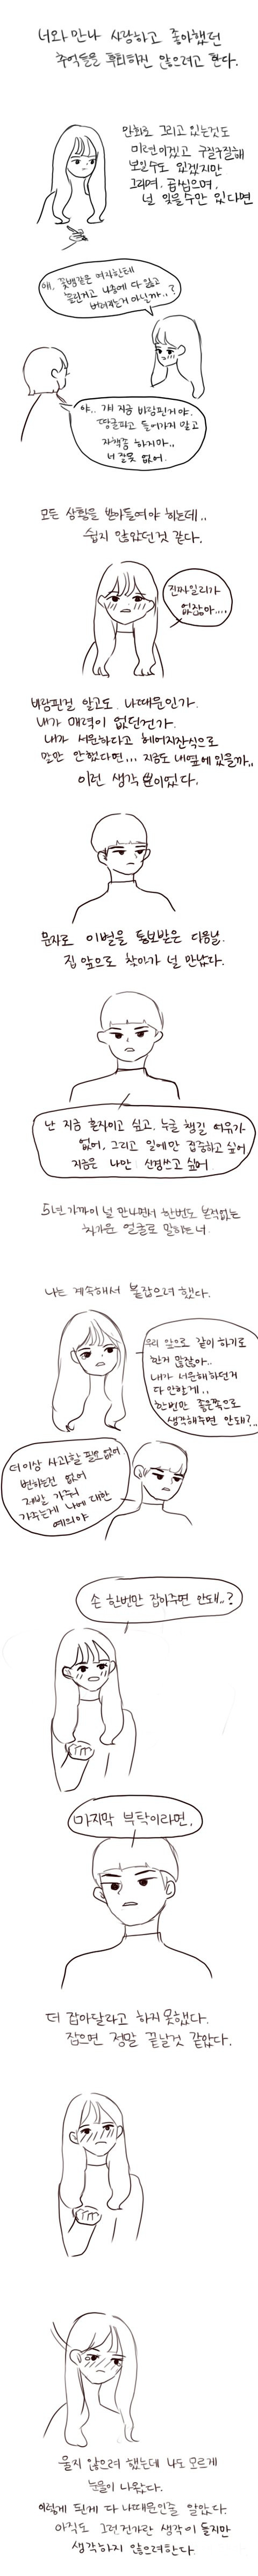 너와 만나 사랑하고 좋아했던
추억들을 후회하진 않으려고 한다.
만화로 그리고 있는것도
미련이겠고 구질구질해
보일수도 있겠지만
그리며, 곱씹으며,
널 잊을수만 있다면
얘, 꽃뱀같은 여자한테
홀린거고 나중에 다 잃고
버려지는거 아닌가..?
야.. 걔 지금 바람핀거야.
땅굴파고 들어가지 말고
자책좀 하지마..
너 잘못 없어.
모든 상황을 받아들여야 하는데..
쉽지 않았던것 같다.
진짜일리가
없잖아....
바람핀걸 알고도. 나때문인가.
내가 매력이 없던건가.
내가 서운하다고 헤어지잔식으로
말만 안했다면... 지금도 내옆에 있을까..
이런 생각 뿐이었다.
문자로 이별을 통보받은 다음날.
집 앞으로 찾아가 널 만났다.
난 지금 혼자이고 싶고, 누굴 챙길 여유가
없어, 그리고 일에만 집중하고 싶어
지금은 나만 신경쓰고 싶어
5년 가까이 널 만나면서 한번도 본적없는
차가운 얼굴로 말하는 너.
나는 계속해서 붙잡으려 했다.
우리 앞으로 같이 하기로
한거 많잖아..
내가 서운해하던거
다 안할게..
한번만 좋은쪽으로
생각해주면 안돼?..
더이상 사과할 필요 없어
변하는건 없어
제발 가줘
가주는게 나에 대한
예의야
손 한번만 잡아주면 안돼..?
마지막 부탁이라면.
더 잡아달라고 하지 못했다.
잡으면 정말 끝날것 같았다.
울지 않으려 했는데 나도 모르게
눈물이 나왔다.
이렇게 된게 다 나때문인줄 알았다.
아직도 그런건가란 생각이 들지만
생각하지 않으려한다.